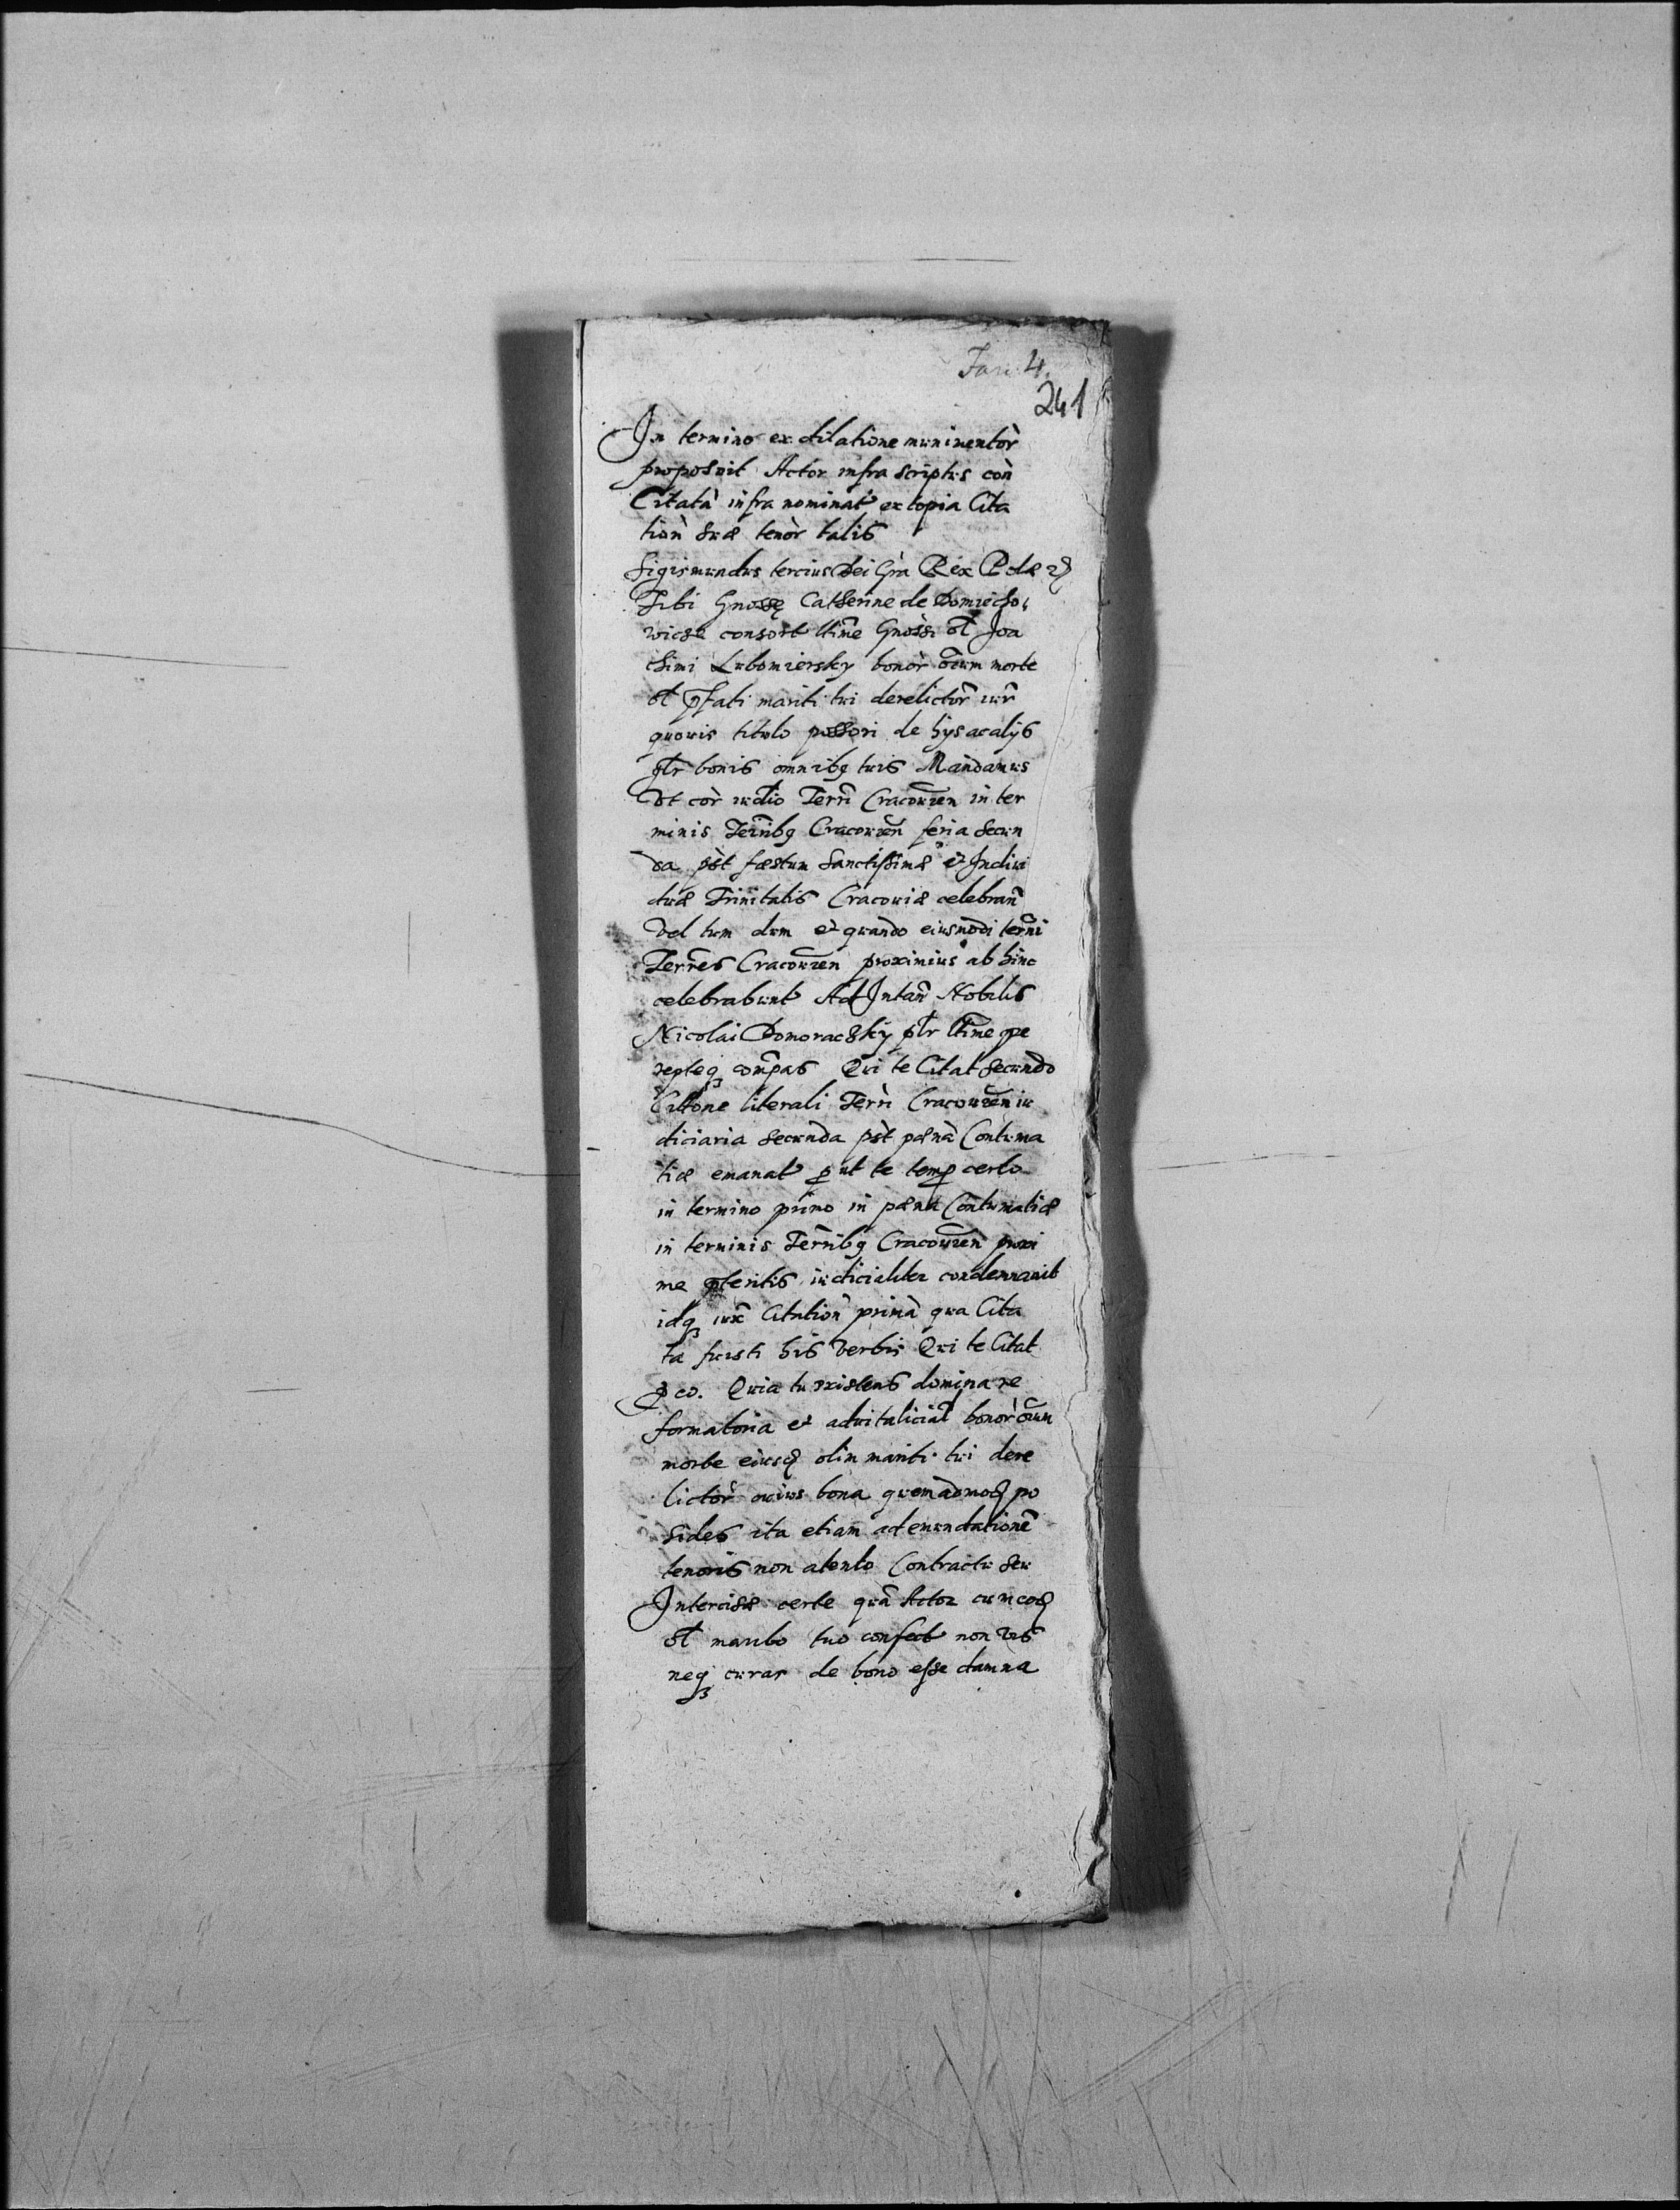 Fasc. 4.
241
In termino ex dilatione munimentor̀
proposuit Actor infra scriptus con̄
Citatā infra nominat̄ ex copia Cita
tion̄ suæ tenor̄ talis
Sigismundus tercius Dei Grā Rex Polæ
Tibi Gnossę Catherine de Domiecho,
wicze consort̄ ltīme Gnōssi ol̄ Joa
chimi Lubomiersky bonor̄ oīum morte
ol̄ p̄fati mariti tui derelictor̄ iur̄
quouis titulo possōri de hys ac alÿs
gl̄r bonis omnibq tuis Mandamus
Vt cor̄ iudio Terrī Cracouien̄ in ter
minis Terr̄ibq Cracouien̄ feria Secun
da p̄st fæstum Sanctissimæ et Indiui
duæ Trinitatis Cracouiæ celebran̄
Vel tum dum et quando eiusmodi ter̄ni
Terr̄es Cracouien̄ proximius ab hinc
celebrabunt̄ Ad Intan̄ Nobilis
Nicolai Domoraczky pl̄r ltīme ꝑe
repteq̨ comp̄as Qui te Citat Secundo
Cittone literali Terr̄i Cracouien̄ iu
diciaria Secunda p̄st pænā Contuma
tiæ emanat̄ ꝓut te temp̄ certo
in termino primo in pæna Contumatiæ
in terminis Terr̄ibq Cracouien̄ proxi
me p̄teritis iudicialiter condemnauit
idq̨ iux̄ Citation̄ primā qua Cita
ta fuisti his verbis Qui te Citat
ꝓ eo. Quia tu existens domina re
formatoria et aduitalicial̄ bonor̄ oīum
morte eiusd̨ olim mariti tui dere
lictor̄ cuius bona quemadmod̨ po
sides ita etiam ad emundationē
tenoris non atento Contractu seu
Intercisæ certe quā Actor cum eod̨
ol̄ marito tuo confect̄ non vis
neq̨ curas de bono esse damna